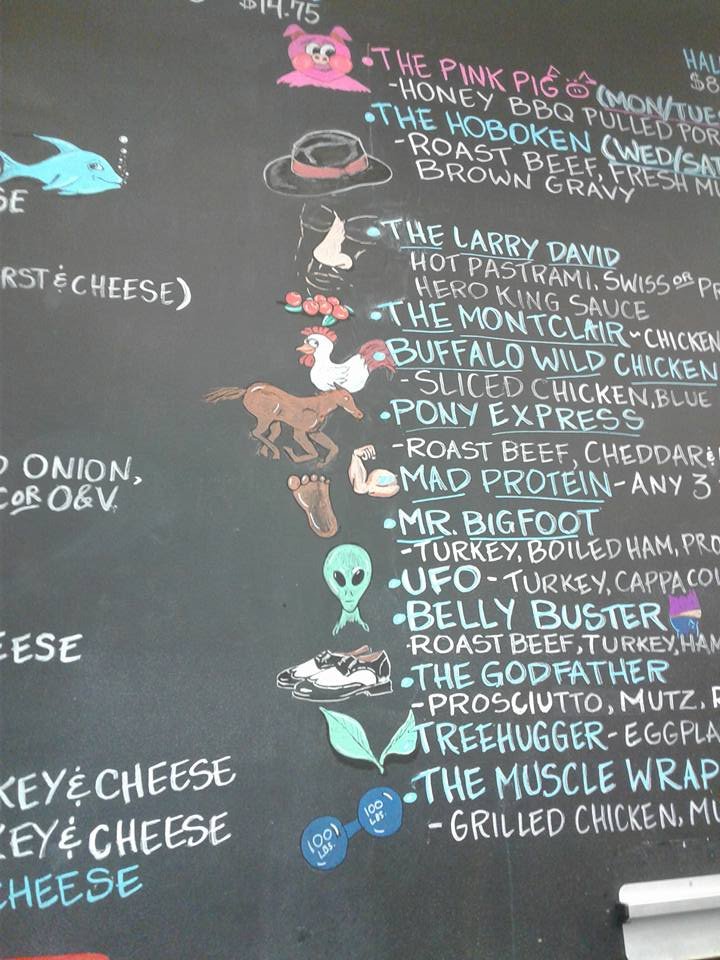 $14.75
• THE PINK PIG (MON/TUE
-HONEY BBQ PULLED POR
HAL
$8
• THE HOBOKEN (WED/SAT
-ROAST BEEF, FRESH MU
BROWN GRAVY
• THE LARRY DAVID
HOT PASTRAMI, SWISS OR PR
HERO KING SAUCE
• THE MONTCLAIR~CHICKEN
• BUFFALO WILD CHICKEN
-SLICED CHICKEN, BLUE
• PONY EXPRESS
-ROAST BEEF, CHEDDAR &
• MAD PROTEIN-ANY 3
• MR. BIGFOOT
-TURKEY, BOILED HAM, PRO
• UFO-TURKEY, CAPPACOL
• BELLY BUSTER
-ROAST BEEF, TURKEY, HAM
• THE GODFATHER
-PROSCIUTTO, MUTZ,
• TREEHUGGER-EGGPLA
• THE MUSCLE WRAP
-GRILLED CHICKEN, MU
100 LBS.
100 LBS.
SE
RST & CHEESE)
ONION,
OR O&V
EESE
KEY & CHEESE
KEY & CHEESE
CHEESE